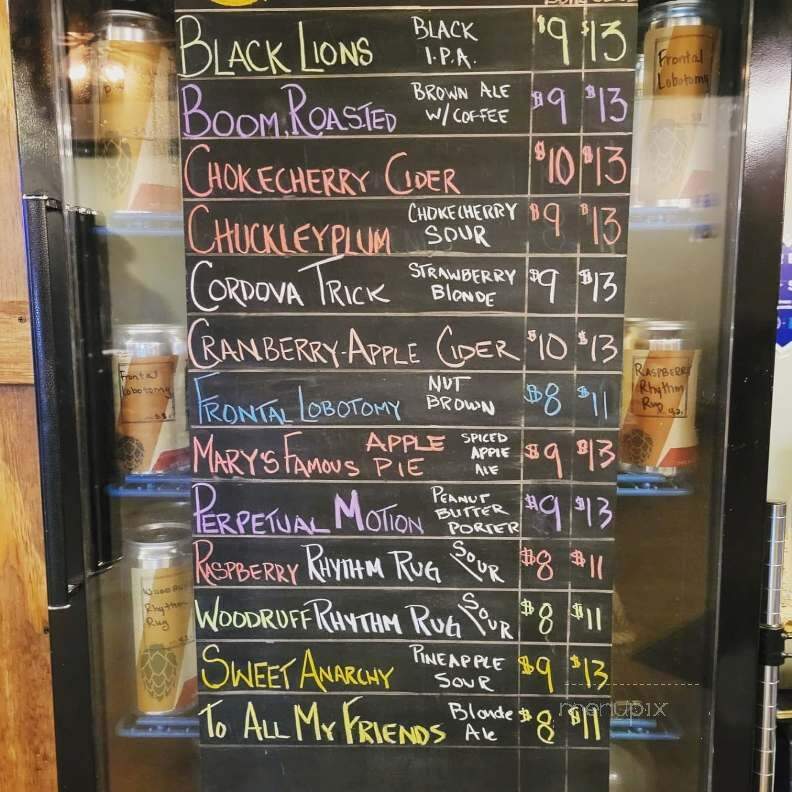 BLACK LIONS BLACK I.P.A. $9 $13
BOOM, ROASTED BROWN ALE W/COFFEE $9 $13
CHOKECHERRY CIDER $10 $13
CHUCKLEYPLUM CHOKECHERRY SOUR $9 $13
CORDOVA TRICK STRAWBERRY BLONDE $9 $13
CRANBERRY-APPLE CIDER $10 $13
FRONTAL LOBOTOMY NUT BROWN $8 $11
MARY'S FAMOUS APPLE PIE SPICED APPLE ALE $9 $13
PERPETUAL MOTION PEANUT BUTTER PORTER $9 $13
RASPBERRY RHYTHM RUG SOUR $8 $11
WOODRUFF RHYTHM RUG SOUR $8 $11
SWEET ANARCHY PINEAPPLE SOUR $9 $13
TO ALL MY FRIENDS Blonde Ale $8 $11
Frontal
Lobotomy
Frontal
Lobotomy
RASPBERRY
Rhythm
Rug
Woodruff
Rhythm
Rug
menupix